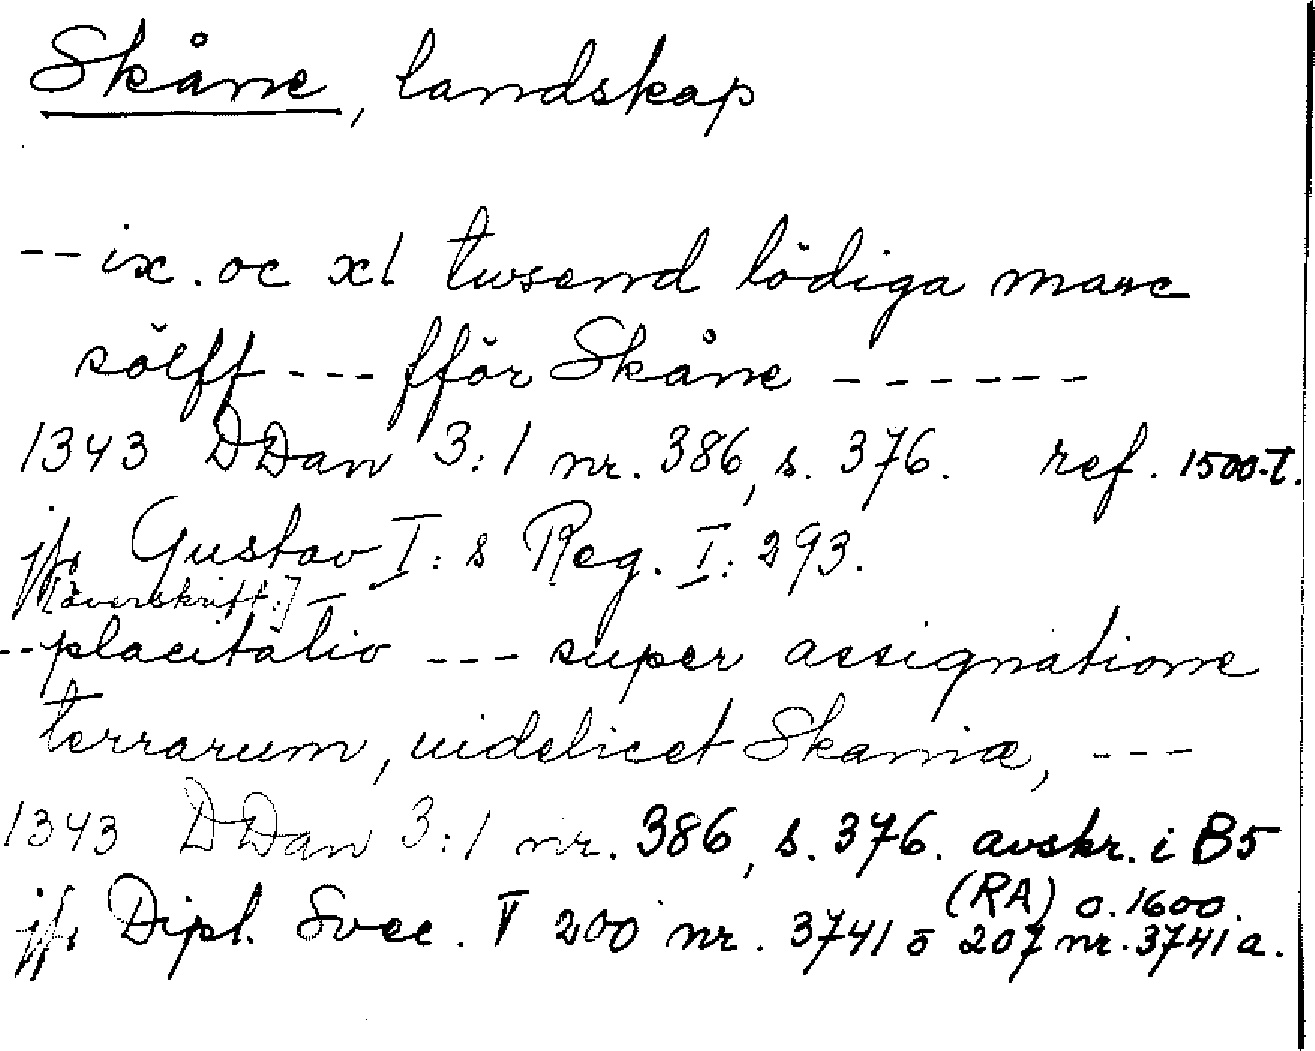 Skåne, landskap
-- ix. oc xl twsend lödiga marc
sölff --- fför Skåne ------
1343 DDan 3:1 nr. 386, s. 376. ref. 1500-t.
jfr Gustav I:s Reg. I: 293.
[överskrift:]
-- placitatio --- super assignatione
terrarum, uidelicet Skaniæ, ---
1343 DDan 3:1 nr. 386, s. 376. avskr. i B5
(RA) o. 1600.
jfr Dipl. Svec. V 200 nr. 3741 o 207 nr. 3741 a.